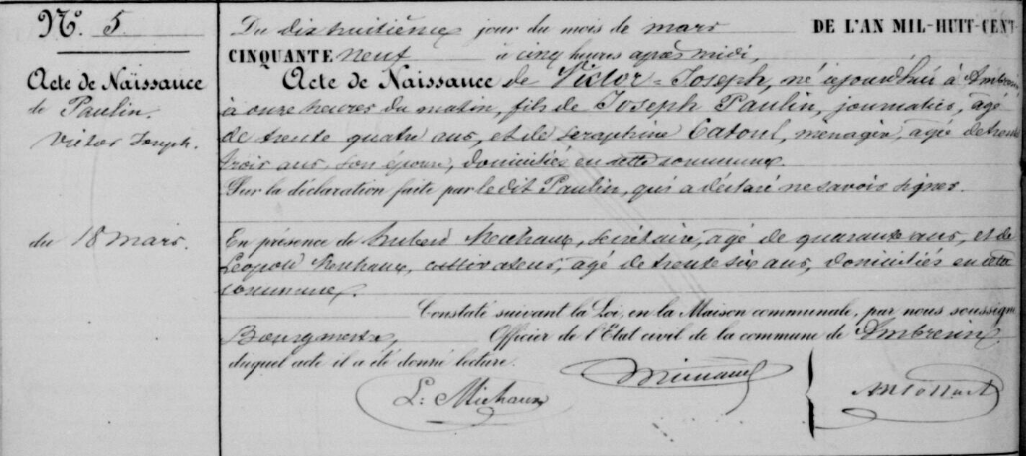 N.º 5.
Acte de Naissance
de Paulin.
Victor Joseph.
du 18 mars.
Du dix huitième jour du mois de mars DE L'AN MIL-HUIT-CENT-
CINQUANTE neuf à cinq heures après midi,
Acte de Naissance de Victor-Joseph, né ajourd'hui à
à onze heures du matin, fils de Joseph Paulin, journalier, agé
de trente quatre ans, et de Seraphine Catoul, menagère, agée de trente
trois ans son épouse, domiciliés en cette commune.
Sur la déclaration faite par ledit Paulin, qui a déclaré ne savoir signer.
En présence de Hubert Michaux, secrétaire, agé de quarante ans, et de
Leopold Michaux, cultivateur, agé de trente six ans, domiciliés en cette
commune.
Constaté suivant la Loi, en la Maison communale, par nous soussigné
Bourgmestre, Officier de l'Etat civil de la commune de Ambresin
duquel acte il a été donné lecture.
L: Michaux